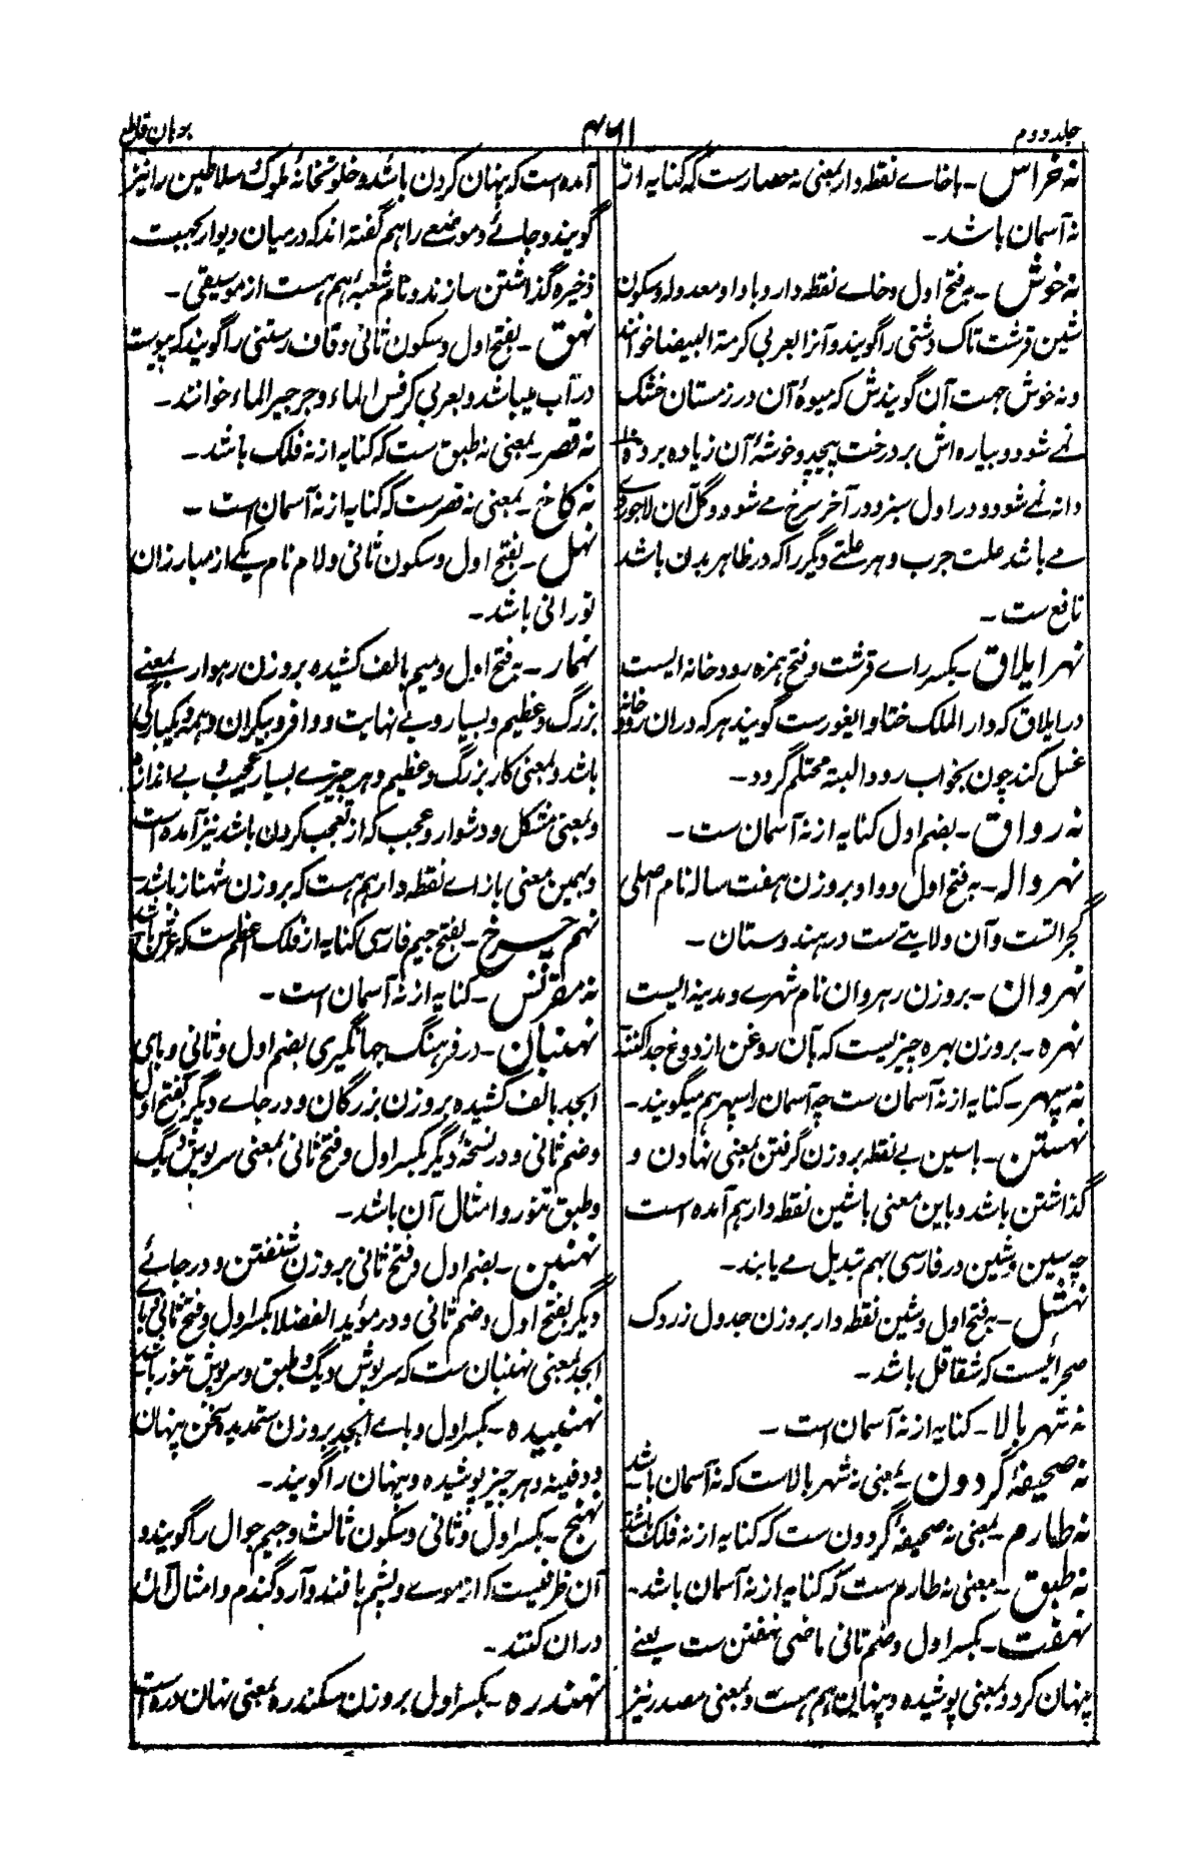 جلد دوم
۴۶۱
برهان قاطع
نه خراس - باخاے نقطه دار بمعنی نه حصارست که کنایه از
نه آسمان باشد -
نه خوش - به فتح اول وخاے نقطه دار و باواو معدوله و سکون
شین قرشت تاک دشتی را گویند و آنرا بعربی کرمة البیضا خوانند
و نه خوش جهت آن گویندش که میوۀ آن در زمستان خشک
نمے شود و بیاره اش بر درخت پیچد و خوشۀ آن زیاده بر ده
دانه نمے شود و در اول سبز و در آخر سرخ مے شود و گل آن لاجوردی
مے باشد علت جرب و هر علتے دیگر را که در ظاهر بدن باشد
نافع ست -
نهر ایلاق - بکسر راے قرشت و فتح همزه رودخانه ایست
در ایلاق که دار الملک ختا و ایغورست گویند هر که دران رودخانه
غسل کند چون بخواب رود البته محتلم گردد -
نه رواق - بضم اول کنایه از نه آسمان ست -
نهر واله - به فتح اول و واو بروزن هفت ساله نام اصلی
گجراتست و آن ولایتے ست در هندوستان -
نهروان - بروزن رهروان نام شهرے و مدینه ایست
نهره - بروزن بهره چیزیست که بآن روغن از دوغ جدا کنند
نه سپهر - کنایه از نه آسمان ست چه آسمان را سپهر هم میگویند -
نهستن - باسین بے نقطه بروزن گرفتن بمعنی نهادن و
گذاشتن باشد و باین معنی باشین نقطه دار هم آمده است
چه سین و شین در فارسی بهم تبدیل مے یابند -
نهشل - به فتح اول و شین نقطه دار بروزن جدول زردک
صحرائیست که شقاقل باشد -
نه شهر بالا - کنایه از نه آسمان است -
نه صحیفۀ گردون - بمعنی نه شهر بالاست که نه آسمان باشد
نه طارم - بمعنی نه صحیفۀ گردون ست که کنایه از نه فلک باشد
نه طبق - بمعنی نه طارم ست که کنایه از نه آسمان باشد -
نهفت - بکسر اول و ضم ثانی ماضی نهفتن ست یعنے
پنهان کرد و بمعنی پوشیده و پنهان هم هست و بمعنی مصدر نیز
آمده است که پنهان کردن باشد و خلوتخانۀ ملوک و سلاطین را نیز
گویند و جائے و موضعے را هم گفته اند که درمیان دیوار بجهت
ذخیره گذاشتن سازند و نام شعبۀ هم هست از موسیقی -
نهق - بفتح اول و سکون ثانی و قاف رستنی را گویند که پیوسته
در آب میباشد و بعربی کرفس الماء و جرجیر الماء خوانند -
نه قصر - بمعنی نه طبق ست که کنایه از نه فلک باشد -
نه کاخ - بمعنی نه قصرست که کنایه از نه آسمان است -
نهل - بفتح اول و سکون ثانی و لام نام یکے از مبارزان
تورانی باشد -
نهمار - به فتح اول و میم بالف کشیده بروزن رهوار بمعنے
بزرگ و عظیم و بسیار و بے نهایت و وافر و بیکران و همه و یکبارگی
باشد و بمعنی کار بزرگ و عظیم و هر چیزے بسیار عجیب و بے اندازه
و بمعنی مشکل و دشوار و عجب که از تعجب کردن باشد نیز آمده است
و بهمین معنی بازاے نقطه دار هم هست که بروزن شهناز باشد -
نهم چرخ - بفتح جیم فارسی کنایه از فلک اعظم ست که عرش باشد
نه مقرنس - کنایه از نه آسمان است -
نهنبان - در فرهنگ جهانگیری بضم اول و ثانی و بای
ابجد بالف کشیده بروزن بزرگان و در جاے دیگر بفتح اول
و ضم ثانی و در نسخۀ دیگر بکسر اول و فتح ثانی بمعنی سرپوش دیگ
و طبق تنور و امثال آن باشد -
نهنبن - بضم اول و فتح ثانی بروزن شنفتن و در جائے
دیگر بفتح اول و ضم ثانی و در مؤید الفضلا بکسر اول و فتح ثانی با
ابجد بمعنی نهنبان ست که سرپوش دیگ و طبق و سرپوش تنور باشد
نهنبیده - بکسر اول و باے ابجد بروزن ستمدیده سخن پنهان
و دفینه و هر چیز پوشیده و پنهان را گویند -
نهنج - بکسر اول و ثانی و سکون ثالث و جیم جوال را گویند و
آن ظرفیست که از موے و پشم بافند و آرد و گندم و امثال آن
دران کنند -
نهندره - بکسر اول بروزن سکندره بمعنی نهان دره است